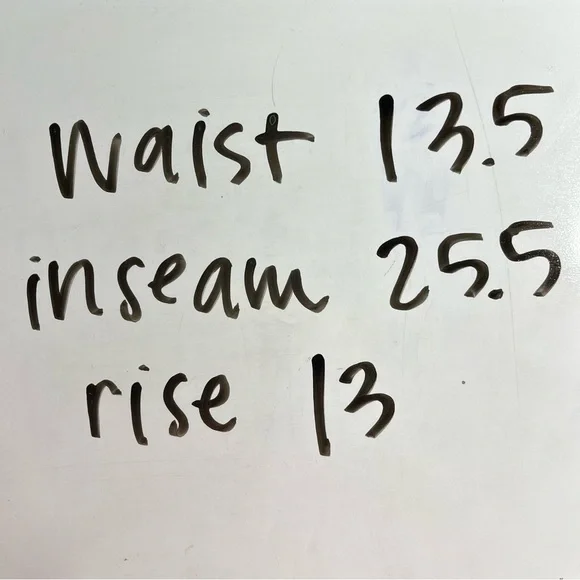 waist 13.5
inseam 25.5
rise 13